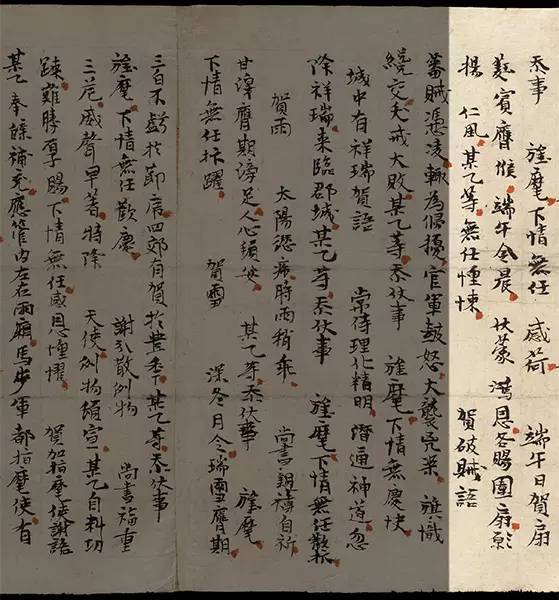 忝事 旌麾下情無任 感荷 端午日賀扇
蕤賓膺候端午令晨伏蒙 鴻恩各賜團扇影
揚 仁風某乙等無任惶悚 賀破賊語
蕃賊馮凌輒為侵擾官軍鼓怒大襲兇 旌
纔交大敗某乙等忝伏事 旌麾下情無慶快
城中有祥瑞賀語 常侍理化精明潛通神道忽
除祥瑞來臨郡城某乙等忝伏事 旌麾下情無任歡抃
賀雨 太陽恣時雨稍乖 尚書親禱自祈
甘澤膺期滂足人心頓安 某乙等忝伏事 旌麾
下情無任抃躍 賀雪 深冬月令瑞雪膺期
三白不虧於節序四郊有賀於豐年某乙等忝伏事
旌麾下情無任歡慶 謝散例物 尚書福重
三危威聲早著特降 天使例物頒宣某乙自料功
踈難勝厚賜下情無任感恩惶懼 賀加指麾使謝語
某乙奉牒補充應管內左右兩廂馬步軍都指麾使有